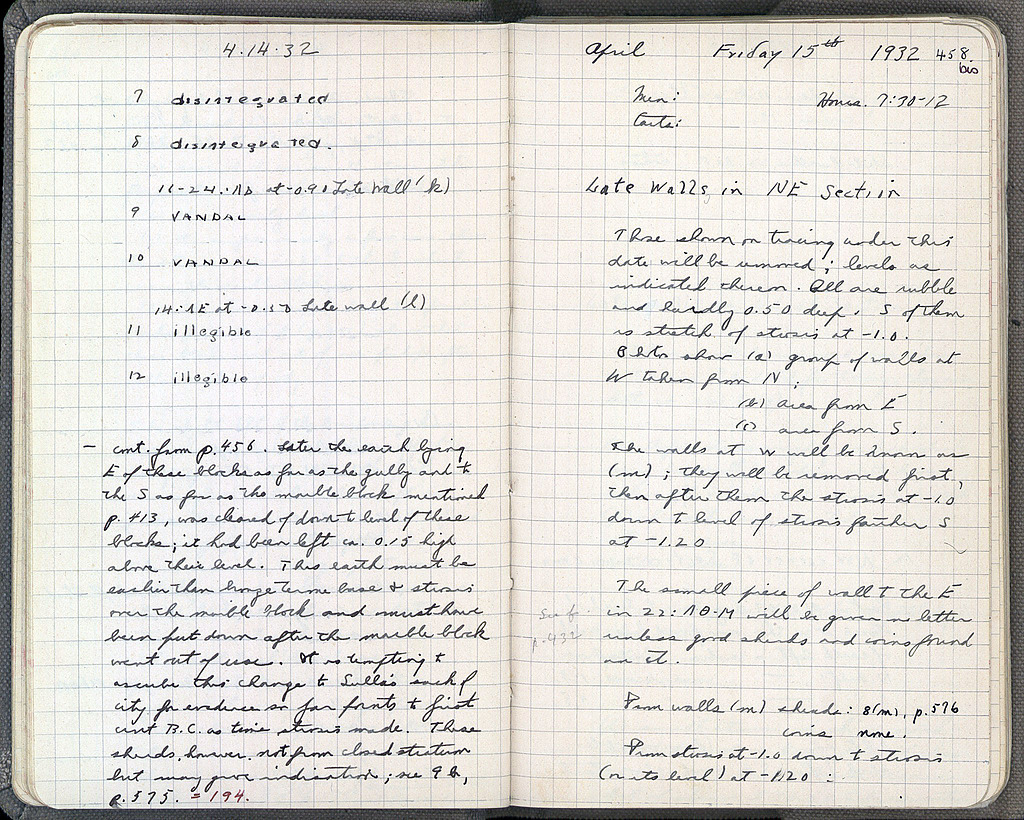 4.14.32
7 disintegrated
8 disintegrated.
11-24:ΛΔ at -0.90 Late wall (k)
9 VANDAL
10 VANDAL
14:ΛE at -0.50 Late wall (l)
11 illegible
12 illegible
– cont. from p. 456. Later the earth lying
E of these blocks as far as the gully and to
the S as far as the marble block mentioned
p. 413, was cleared of down to level of these
blocks; it had been left ca. 0.15 high
above their level. This earth must be
earlier than large terme base & strosis
over the marble block and must have
been put down after the marble block
went out of use. It is tempting to
ascribe this change to Sulla's sack of
city for evidence so far points to first
cent B.C. as time strosis made. These
sherds, however, not from closed stratum
but may give indication; see 9 b,
p. 575. = 194.
April Friday 15th 1932 458
bis
Men: Hours. 7:30-12
Carts:
Late Walls in NE Section
Those shown on tracing under this
date will be removed; levels as
indicated thereon. All are rubble
and hardly 0.50 deep. S of them
is stretch of strosis at -1.0.
show (a) group of walls at
W taken from N;
(b) area from E
(c) area from S.
The walls at W will be known as
(m); they will be removed first,
then after them the strosis at -1.0
down to level of strosis farther S
at -1.20
The small piece of wall to the E
in 22:ΛΘ-M will be given no letter
unless good sherds and coins found
in it.
See f.
p. 432
From walls (m) sherds: 8(m), p. 576
coins none.
From strosis at -1.0 down to strosis
(or its level) at -1.20: